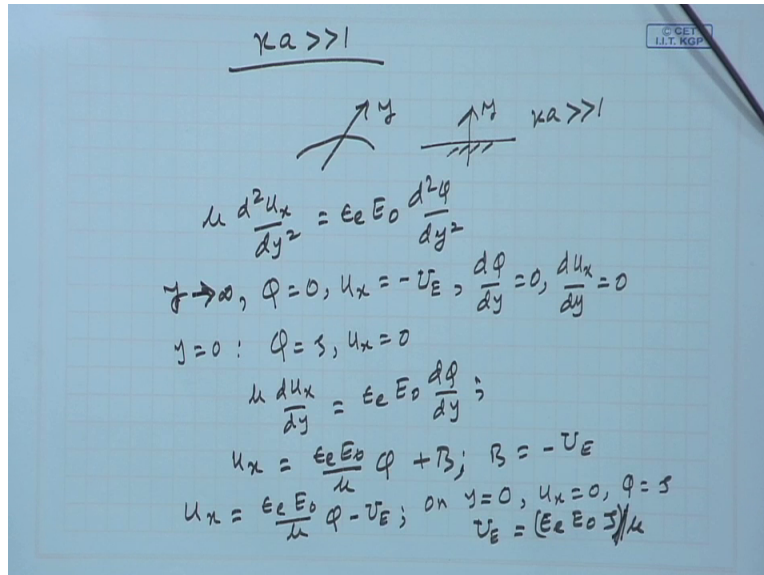 κa >> 1
© CET
I.I.T. KGP
y
y
κa >> 1
μ d²uₓ/dy² = εₑ E₀ d²φ/dy²
y → ∞, φ = 0, uₓ = -U_E, dφ/dy = 0, duₓ/dy = 0
y = 0 : φ = ζ, uₓ = 0
μ duₓ/dy = εₑ E₀ dφ/dy ;
uₓ = εₑ E₀/μ φ + B; B = -U_E
uₓ = εₑ E₀/μ φ - U_E; on y = 0, uₓ = 0, φ = ζ
U_E = (εₑ E₀ ζ)/μ